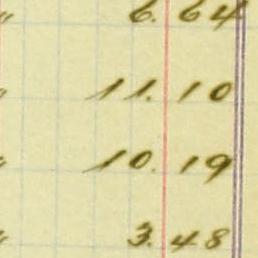 " 6.64
" 11.10
" 10.19
" 3.48